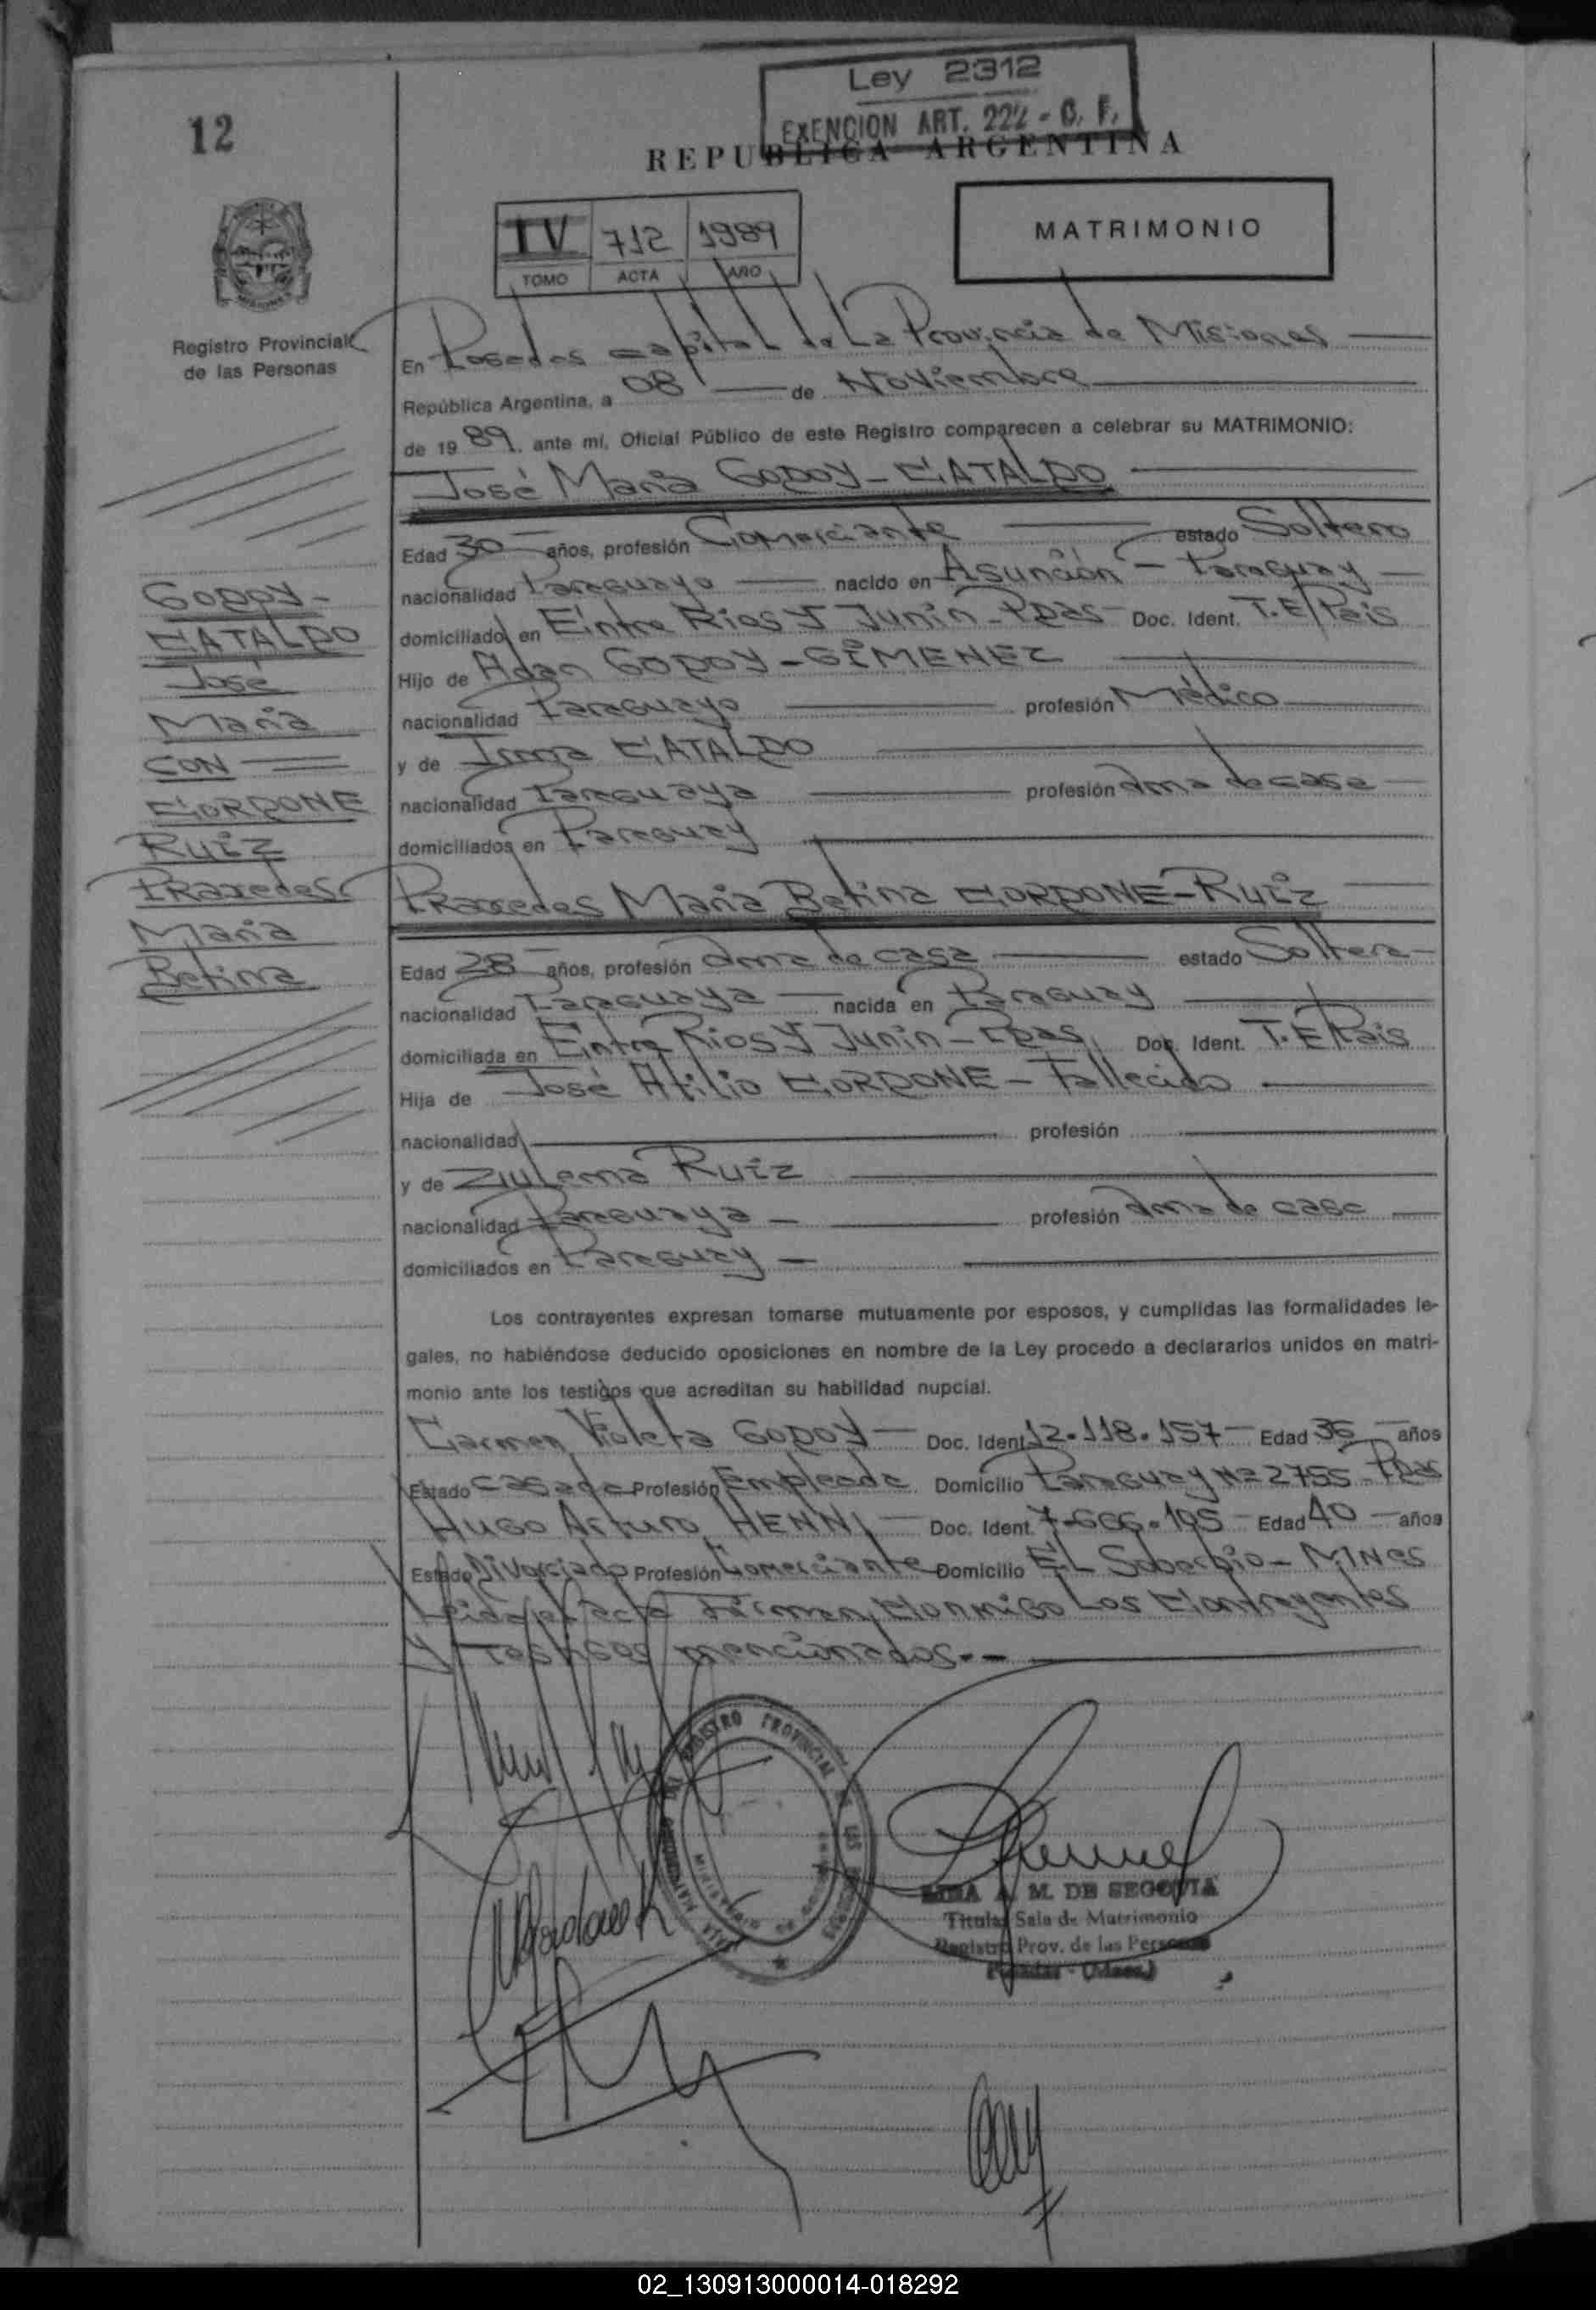 12
Ley 2312
EXENCION ART. 222 - C. F.
REPUBLICA ARGENTINA
IV 712 1989
TOMO ACTA AÑO
MATRIMONIO
Registro Provincial
de las Personas
En Posadas capital de La Provincia de Misiones
República Argentina, a 08 de Noviembre
de 1989, ante mí, Oficial Público de este Registro comparecen a celebrar su MATRIMONIO:
José Maria GODOY - CATALDO
Edad 30 años, profesión Comerciante estado Soltero
nacionalidad Paraguayo nacido en Asunción - Paraguay
domiciliado en Entre Rios y Junin - Pdas Doc. Ident. T.E/Pais
Hijo de Adan GODOY - GIMENEZ
nacionalidad Paraguayo profesión Médico
y de CATALDO
nacionalidad Paraguaya profesión Ama de casa
domiciliados en Paraguay
Praxedes Maria Betina CORDONE - RUIZ
Edad 28 años, profesión Ama de casa estado Soltera
nacionalidad Paraguaya nacida en Paraguay
domiciliada en Entre Rios y Junin - Pdas Doc. Ident. T.E/Pais
Hija de José Atilio CORDONE - Fallecido
nacionalidad profesión
y de Zulema Ruiz
nacionalidad Paraguaya - profesión Ama de casa
domiciliados en Paraguay -
Godoy -
CATALDO
José
Maria
CON
CORDONE
Ruiz
Praxedes
Maria
Betina
Los contrayentes expresan tomarse mutuamente por esposos, y cumplidas las formalidades le-
gales, no habiéndose deducido oposiciones en nombre de la Ley procedo a declararlos unidos en matri-
monio ante los testigos que acreditan su habilidad nupcial.
Carmen Violeta GODOY - Doc. Ident 12.118.157 - Edad 36 años
Estado Casada Profesión Empleada Domicilio Paraguay Nº 2755 - Pdas
Hugo Arturo HENN - Doc. Ident. 7.666.195 - Edad 40 - años
Estado Divorciado Profesión Comerciante Domicilio El Soberbio - Mnes
Leida el acta Firman conmigo Los Contrayentes
y testigos mencionados. -
REGISTRO PROVINCIAL DE LAS PERSONAS
MINISTERIO DE GOBIERNO
A. M. DE SEGOVIA
Titular Sala de Matrimonio
Registro Prov. de las Personas
Posadas - (Mnes.)
02_130913000014-018292